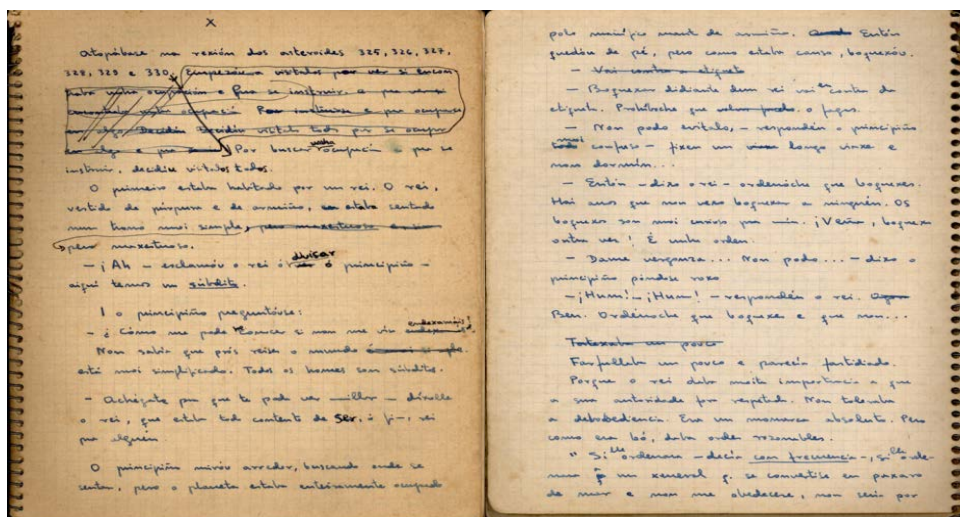 X
Atopábase na rexión dos asteroides 325, 326, 327,
328, 329 e 330. Empezou a visitalos por ver si encon
traba unha ocupación e pra se instruir.
Por buscar unha ocupación e pra se
instruir, decidiu visitalos todos.
O primeiro estaba habitado por un rei. O rei,
vestido de púrpura e de armiño, estaba sentado
nun trono moi simple, pero maxestuoso e
pero maxestuoso.
— ¡Ah — exclamóu o rei ó ver divisar ó principiño —
aiquí temos un súbdito.
I o principiño preguntóuse:
— ¿Cómo me pode conocer si non me viu endexamáis?
Non sabía que prós reises o mundo
está moi simplificado. Todos os homes son súbditos.
— Achégate pra que te poda ver millor — díxolle
o rei, que estaba todo contento de ser, ó fin, rei
pra alguén
O principiño miróu arredor, buscando onde se
sentar, pero o planeta estaba enteiramente ocupado
polo manto de armiño. Entón
quedóu de pé, pero como estaba canso, boquexóu.
— Vai contra a etiqueta
— Boquexar didiante dun rei vai en contra da
etiqueta. Prohíboche que o fagas.
— Non podo evitalo, — respondéu o principiño
todo moi confuso — fixen un longo viaxe e
non dormín...
— Entón — dixo o rei — ordénoche que boquexes.
Hai anos que non vexo boquexar a ninguén. Os
boquexos son moi curiosos pra min. ¡Veña, boquexa
outra vez! É unha orden.
— Dame vergonza... Non podo... — dixo o
principiño póndose roxo
— ¡Hum! ¡Hum! — respondéu o rei.
Ben. Ordénoche que boquexes e que non...
Tartexaba un pouco
Farfullaba un pouco e parecía fastidiado.
Porque o rei daba moita importancia a que
a sua autoridade fora respetada. Non toleraba
a desobediencia. Era un monarca absoluto. Pero
como era bó, daba ordes razonables.
"Si lle ordenara — decía con frecuencia —, si lle orde-
nara a un xeneral q. se convertise en paxaro
de mar e non me obedecese, non sería por